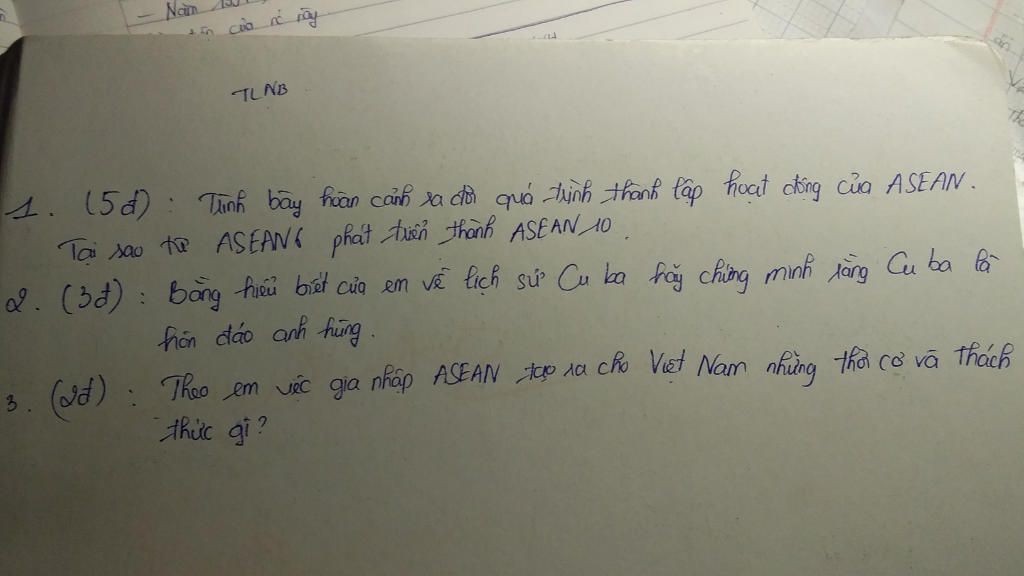 - Năm
của nó này
TLNB
1. (5đ) : Trình bày hoàn cảnh ra đời quá trình thành lập hoạt động của ASEAN.
Tại sao từ ASEAN6 phát triển thành ASEAN10.
2. (3đ) : Bằng hiểu biết của em về lịch sử Cu ba hãy chứng minh rằng Cu ba là
hòn đảo anh hùng.
3. (2đ) : Theo em việc gia nhập ASEAN tạo ra cho Việt Nam những thời cơ và thách
thức gì?